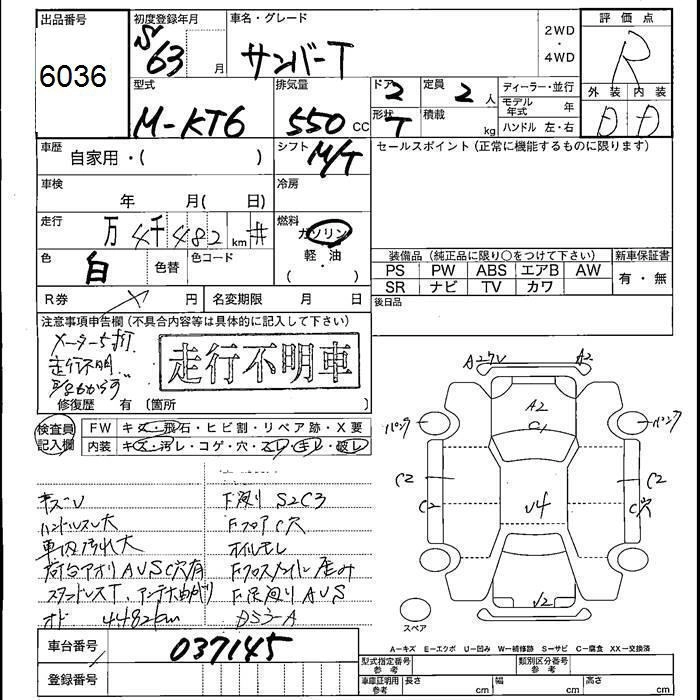 出品番号
6036
初度登録年月
S63 月
車名・グレード
サンバーT
2WD
・
4WD
評価点
R
外装 内装
D D
型式
M-KT6
排気量
550 CC
ドア
2
形状
T
定員
2 人
積載
kg
ディーラー・並行
モデル年式 年
ハンドル 左・右
車歴
自家用・( )
シフト
M/T
セールスポイント(正常に機能するものに限ります)
車検
年 月( 日)
冷房
走行
万4千482 km #
燃料
ガソリン
軽油
( )
色
白
色替
色コード
装備品(純正品に限り○をつけて下さい)
新車保証書
PS PW ABS エアB AW
SR ナビ TV カワ
有・無
R券 円
名変期限 月 日
後日品
注意事項申告欄(不具合内容等は具体的に記入して下さい)
メーター5打
走行不明
走行不明車
修復歴 有(箇所 )
検査員記入欄
FW キズ・飛石・ヒビ割・リペア跡・X要
内装 キズ・汚レ・コゲ・穴・スレ・キレ・破レ
キズU
F廻リ S2C3
ハンドルスレ大
FフロアC穴
車内汚れ大
オイルモレ
荷台アオリAUSC穴有
スタッドレスT、アンテナ曲がり
F足廻リAUS
オド 4482km
A2 A2
A2
C1
パンク パンク
C2 C2
C2 C穴
U4
U2
スペア
A-キズ E-エクボ U-凹み W-補修跡 S-サビ C-腐食 XX-交換済
車台番号
037145
登録番号
型式指定番号 参考
類別区分番号 参考
車庫証明用 参考
長さ cm
幅 cm
高さ cm